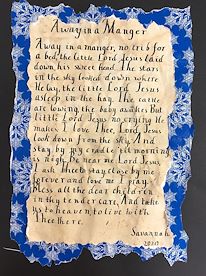 Away in a Manger
Away in a manger, no crib for
a bed, the little Lord Jesus laid
down his sweet head. The stars
in the sky looked down where
He lay, the little Lord Jesus
asleep in the hay. The cattle
are lowing, the baby awakes. But
little Lord Jesus no crying He
makes. I love Thee, Lord Jesus
look down from the sky. And
stay by my cradle 'til morning
is nigh. Be near me Lord Jesus,
I ask Thee to stay close by me
forever and love me I pray.
Bless all the dear children
in thy tender care, And take
us to heaven to live with
Thee there.
Savannah